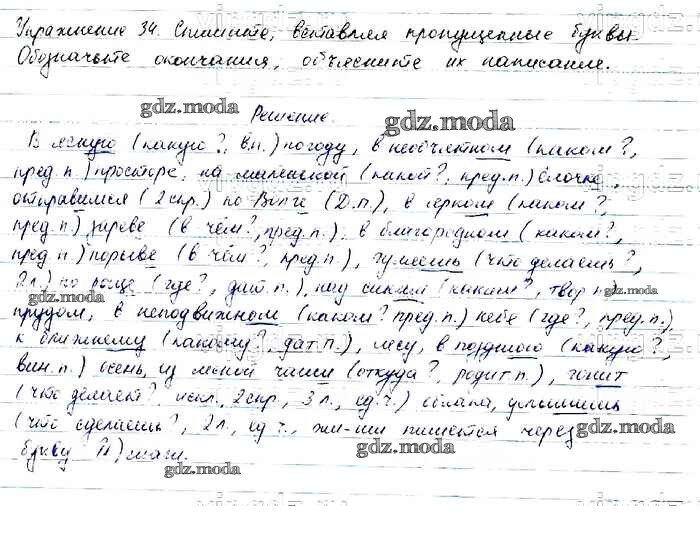 Упражнение 34. Спишите, вставляя пропущенные буквы.
Обозначьте окончания, объясните их написание.
gdz.moda
Решение.
gdz.moda
В ясную (какую?, в.п.) погоду, в необъятном (каком?,
пред.п.) просторе, на маленькой (какой?, пред.п.) ёлочке,
отправимся (2 спр.) по Волге (Д.п.), в ярком (каком?,
пред.п.) зареве (в чём?, пред.п.), в благородном (каком?,
пред.п.) порыве (в чём?, пред.п.), гуляешь (что делаешь?,
2 л.) по роще (где?, дат.п.), над синим (каким?, твор.п.)
gdz.moda
gdz.moda
прудом, в неподвижном (каком? пред.п.) небе (где?, пред.п.),
к ближнему (какому?, дат.п.), лесу, в позднюю (какую?,
вин.п.) осень, из лесной чащи (откуда?, родит.п.), гонит
(что делает?, искл., 2 спр., 3 л., ед.ч.) облака, услышишь
(что сделаешь?, 2 л., ед.ч., жи-ши пишется через
букву И) шаги.
gdz.moda
gdz.moda
gdz.moda